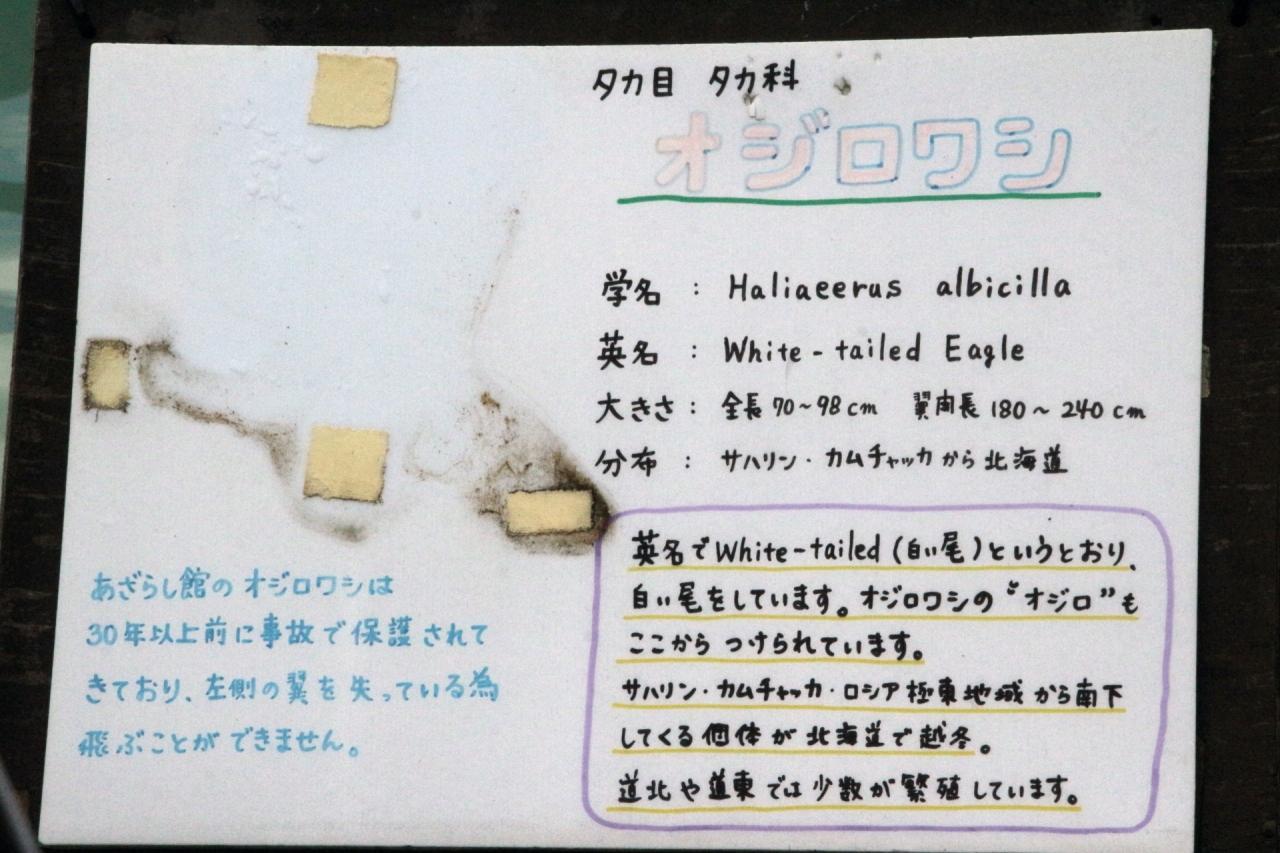 タカ目 タカ科
オジロワシ
学名 : Haliaeerus albicilla
英名 : White-tailed Eagle
大きさ : 全長 70~98cm 翼開長 180~240cm
分布 : サハリン・カムチャッカから北海道
英名でWhite-tailed(白い尾)というとおり、
白い尾をしています。オジロワシの“オジロ”も
ここからつけられています。
サハリン・カムチャッカ・ロシア極東地域から南下
してくる個体が北海道で越冬。
道北や道東では少数が繁殖しています。
あざらし館のオジロワシは
30年以上前に事故で保護されて
きており、左側の翼を失っている為
飛ぶことができません。